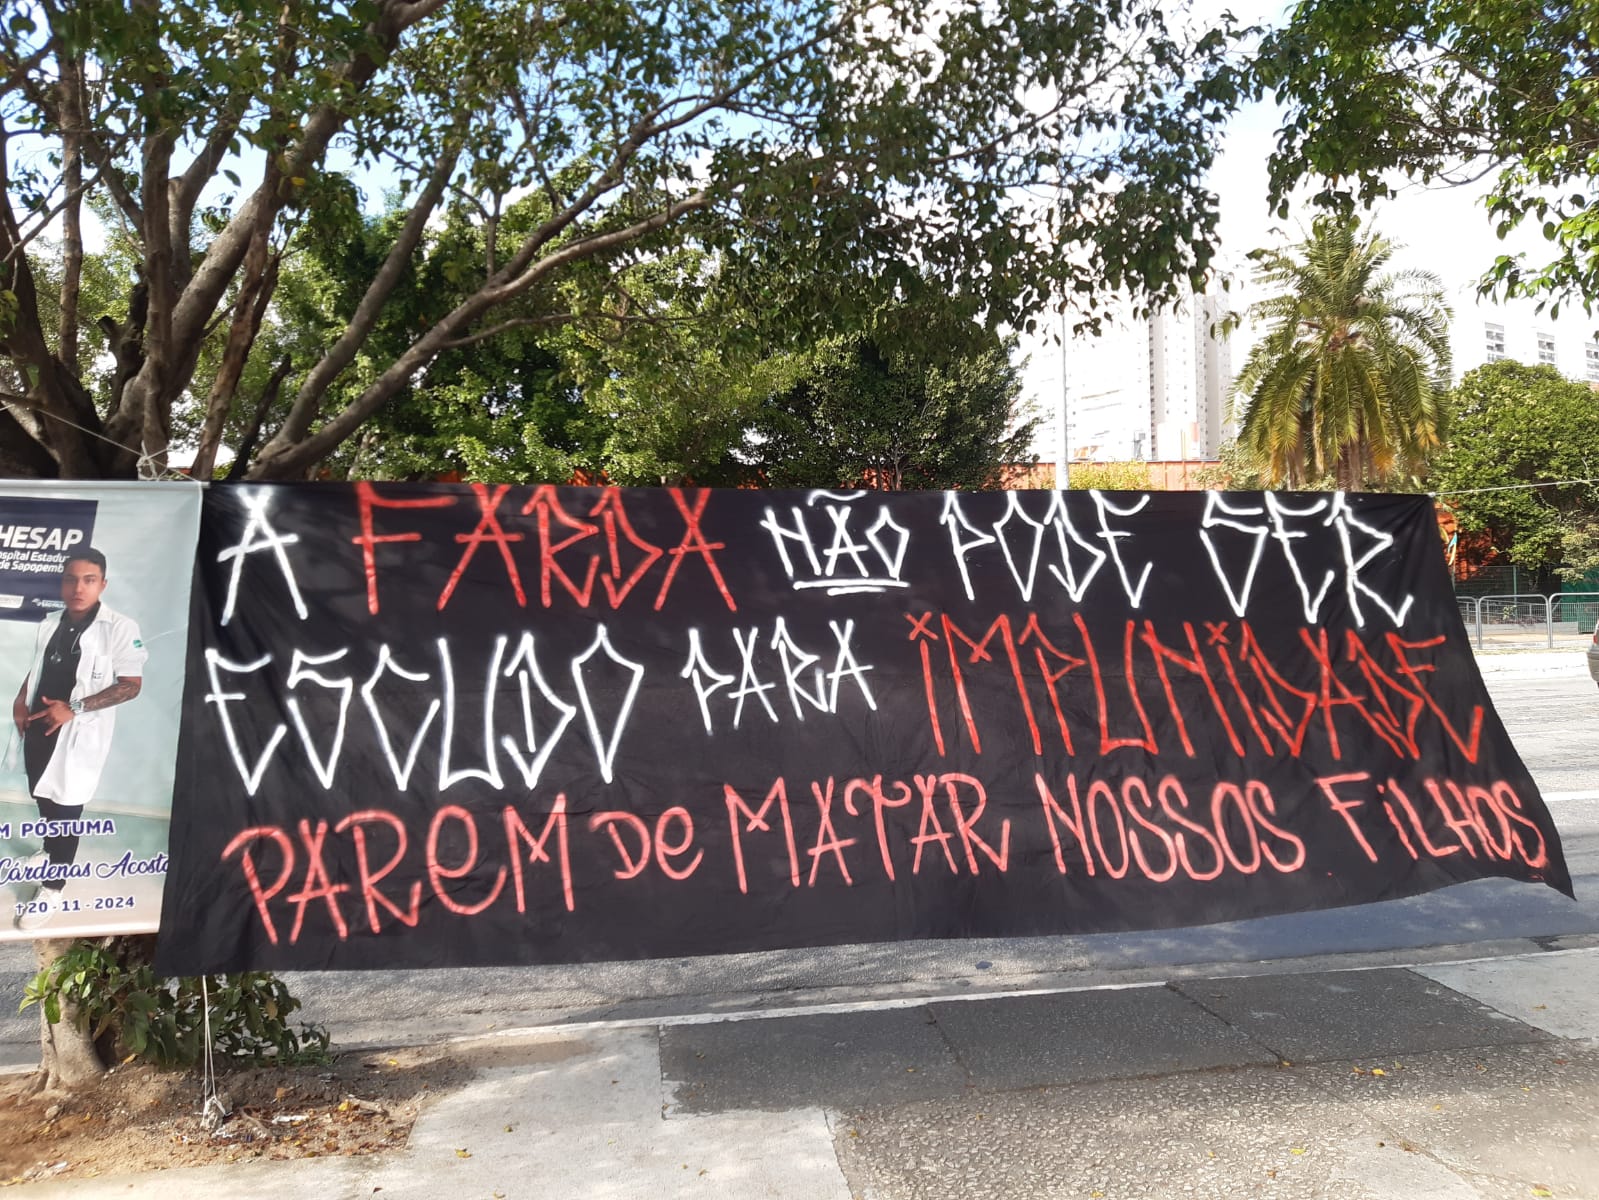 HESAP
de Sapopemb
PÓSTUMA
Cárdenas Acosta
†20-11-2024
A FARDA NÃO PODE SER
ESCUDO PARA IMPUNIDADE
PAREM DE MATAR NOSSOS FILHOS